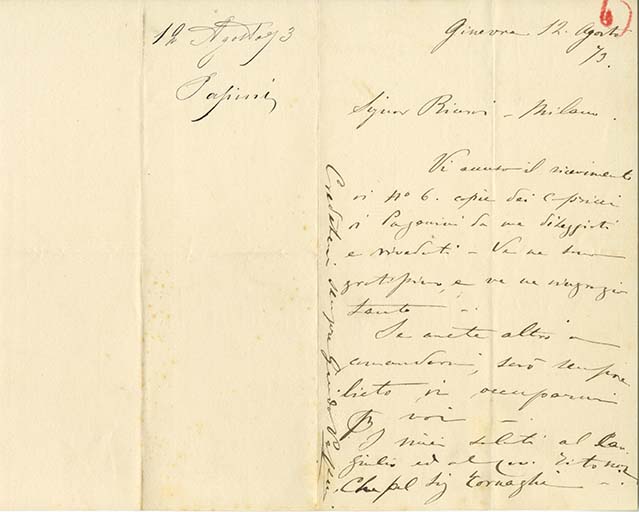 6
12 Agosto 73
Papini
Ginevra 12. Agosto
73.
Signor Ricordi – Milano.
Vi accuso il ricevimento
di No 6. copie dei Capricci
di Paganini da me diteggiati
e riveduti – Ve ne sono
gratissimo, e ve ne ringrazio
tanto –
Se avete altro a
comandarmi, sarò sempre
lieto di occuparmi
p voi –
I miei saluti al
Giulio ed al Cav. Tito non
che al Sig Tornaghi –
Credetemi sempre Guido Papini